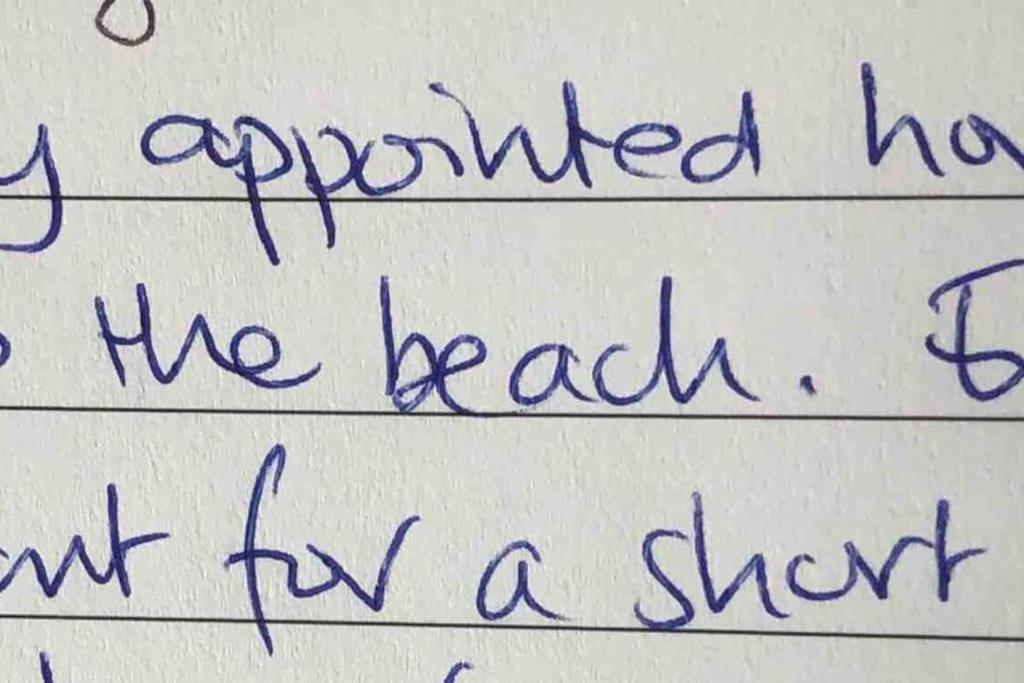 appointed
the beach.
for a short